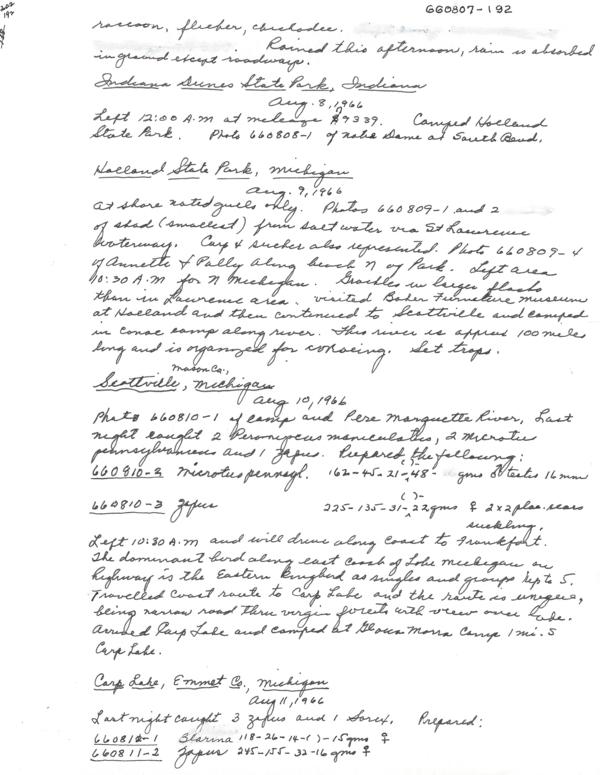 660807-192
202
192
raccoon, flicker, chickadee.
Rained this afternoon, rain is absorbed
in ground except roadways.
Indiana Dunes State Park, Indiana
Aug. 8, 1966
Left 12:00 A.M at mileage 89339. Camped Holland
State Park. Photo 660808-1 of Notre Dame at South Bend.
Holland State Park, Michigan
Aug. 9, 1966
At shore noted gulls only. Photos 660809-1 and 2
of shad (smallest) from salt water via St Lawrence
Waterway. Carp & sucker also represented. Photo 660809-4
of Annette & Polly along beach N of Park. Left area
10:30 A.M for N Michigan. Grackles in larger flocks
than in Lawrence area. Visited Baker Furniture Museum
at Holland and then continued to Scottville and camped
in canoe camp along river. This river is approx 100 miles
long and is organized for canoeing. Set traps.
Mason Co.,
Scottville, Michigan
Aug 10, 1966
Photo 660810-1 of camp and Pere Marquette River, Last
night caught 2 Peromyscus maniculatus, 2 Microtus
pennsylvanicus and 1 Zapus. Prepared the following:
660910-2 Microtus pennsyl. 162-45-21-( )-48- gms ♂ testes 16 mm
660810-3 Zapus 225-135-31-( )-22 gms ♀ 2x2 plac. scars
suckling.
Left 10:30 A.M and will drive along coast to Frankfort.
The dominant bird along east coast of Lake Michigan on
highway is the Eastern Kingbird as singles and groups up to 5.
Travelled coast route to Carp Lake and the route is unique,
being narrow road thru virgin forests with view over lake.
Arrived Carp Lake and camped at Camp 1 mi. S
Carp Lake.
Carp Lake, Emmet Co., Michigan
Aug 11, 1966
Last night caught 3 Zapus and 1 Sorex. Prepared:
660811-1 Blarina 118-26-14-( )-15gms ♀
660811-2 Zapus 245-155-32-16 gms ♀